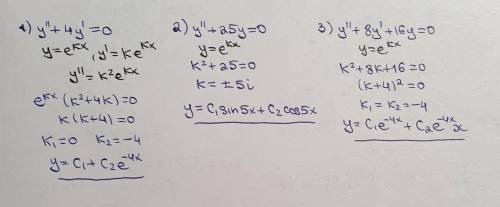 1) y''+4y'=0
y=e^{kx}, y'=ke^{kx}
y''=k²e^{kx}
e^{kx}(k²+4k)=0
k(k+4)=0
k₁=0 k₂=-4
y=C₁+C₂e^{-4x}
2) y''+25y=0
y=e^{kx}
k²+25=0
k=±5i
y=C₁sin5x+C₂cos5x
3) y''+8y'+16y=0
y=e^{kx}
k²+8k+16=0
(k+4)²=0
k₁=k₂=-4
y=C₁e^{-4x}+C₂e^{-4x}x